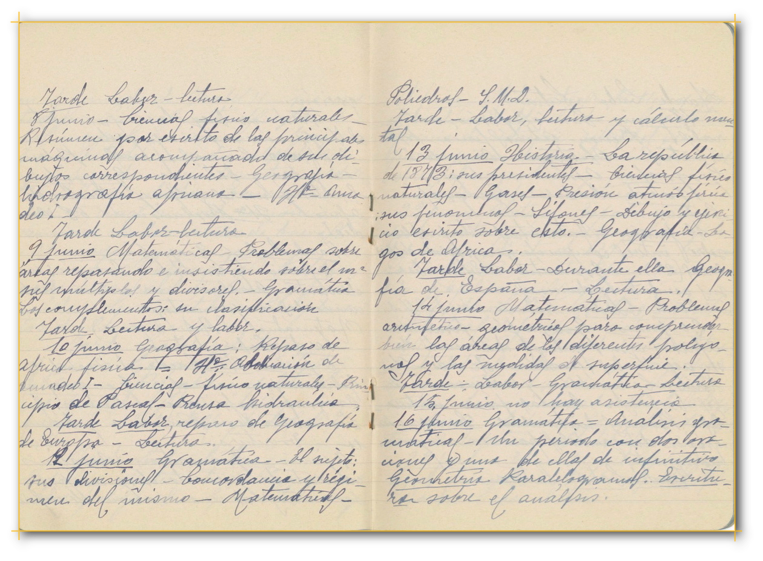 Tarde Labor - lectura
8 junio - Ciencias físico naturales -
Resúmen por escrito de las principales
máquinas acompañado de sus di-
bujos correspondientes - Geografía -
hidrografía africana - Hª Ama
deo I -
Tarde Labor - lectura
9 junio Matemáticas - Problemas sobre
áreas repasando e insistiendo sobre el
múltiplos y divisores. - Gramática
Los complementos: su clasificación
Tarde, Lectura y labor.
10 junio Geografía: Repaso de
África física = Hª Abdicación de
Amadeo I - Ciencias - físico naturales - Prin
cipio de Pascal. Prensa hidráulica
Tarde Labor, repaso de Geografía
de Europa - Lectura.
12 junio Gramática - El sujeto:
sus divisiones - Concordancia y régi-
men del mismo - Matemáticas -
Poliedros - S.M.D.
Tarde - Labor, lectura y cálculo men
tal
13 junio Historia. - La república
de 1873: sus presidentes - Ciencias físico
naturales - Gases - Presión atmosférica
: sus fenómenos - Sifones - Dibujo y ejerci
cio escrito sobre esto. - Geografía - La-
gos de África.
Tarde Labor - Durante ella Geogra
fía de España - Lectura.
14 junio Matemáticas - Problemas
aritmético - geométricos para comprender
bien las áreas de los diferentes polígo-
nos y las medidas de superficie.
Tarde - Labor - Gramática - Lectura
15 junio no hay asistencia
16 junio Gramática = Análisis gra
matical - Un periodo con dos ora-
ciones y una de ellas de infinitivo
Geometría Paralelogramos. Escritu-
ra sobre el análisis.